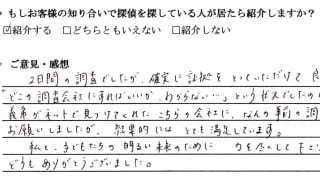 ・もしお客様の知り合いで探偵を探している人が居たら紹介しますか？
☑紹介する □どちらともいえない □紹介しない
・ご意見・感想
2日間の調査でしたが、確実に証拠をとっていただけて良
どこの調査会社にすればいいか、わからない…というゼスでしたの
義弟がネットで見つけてくれたこちらの会社に、なんの事前の調
お願いしましたが、結果的にはとても満足しています。
私と、子どもたちの明るい未来のために 力を尽くして下こ
どうもありがとうございました。